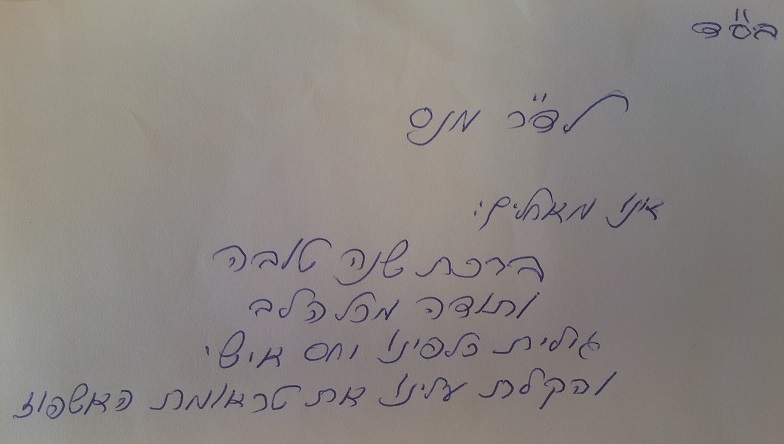 בס"ד
לד"ר מנס
אינו מאחלים:
ברכת שנה טובה
ותודה מכל הלב
גילית כלפינו יחס אישי
והקלת עלינו את טראומת האשפוז